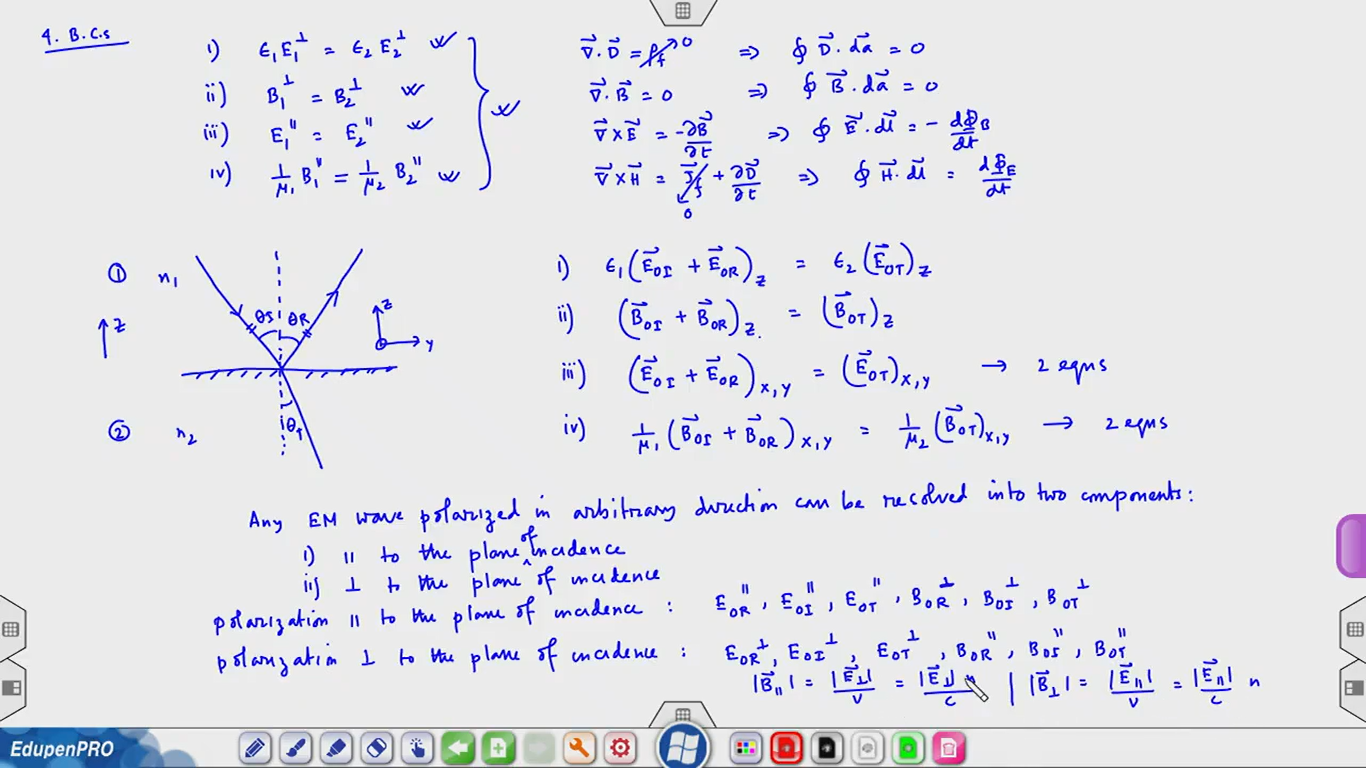 4. B.C.s
i) ϵ₁E₁^⊥ = ϵ₂E₂^⊥
ii) B₁^⊥ = B₂^⊥
iii) E₁^∥ = E₂^∥
iv) 1/μ₁ B₁^∥ = 1/μ₂ B₂^∥
∇⃗.D⃗ = ρf → 0 ⇒ ∮ D⃗.da⃗ = 0
∇⃗.B⃗ = 0 ⇒ ∮ B⃗.da⃗ = 0
∇⃗×E⃗ = -∂B⃗/∂t ⇒ ∮ E⃗.dl⃗ = - dΦB/dt
∇⃗×H⃗ = J⃗f + ∂D⃗/∂t ⇒ ∮ H⃗.dl⃗ = dΦE/dt
0
① n₁
θI θR
z
z
y
② n₂
θT
i) ϵ₁(E⃗OI + E⃗OR)z = ϵ₂(E⃗OT)z
ii) (B⃗OI + B⃗OR)z = (B⃗OT)z
iii) (E⃗OI + E⃗OR)x,y = (E⃗OT)x,y → 2 eqns
iv) 1/μ₁ (B⃗OI + B⃗OR)x,y = 1/μ₂ (B⃗OT)x,y → 2 eqns
Any EM wave polarized in arbitrary direction can be resolved into two components:
i) ∥ to the plane of incidence
ii) ⊥ to the plane of incidence
polarization ∥ to the plane of incidence : EOR^∥, EOI^∥, EOT^∥, BOR^⊥, BOI^⊥, BOT^⊥
polarization ⊥ to the plane of incidence : EOR^⊥, EOI^⊥, EOT^⊥, BOR^∥, BOI^∥, BOT^∥
|B⃗∥| = |E⃗⊥|/v = |E⃗⊥|/c n | |B⃗⊥| = |E⃗∥|/v = |E⃗∥|/c n
EdupenPRO